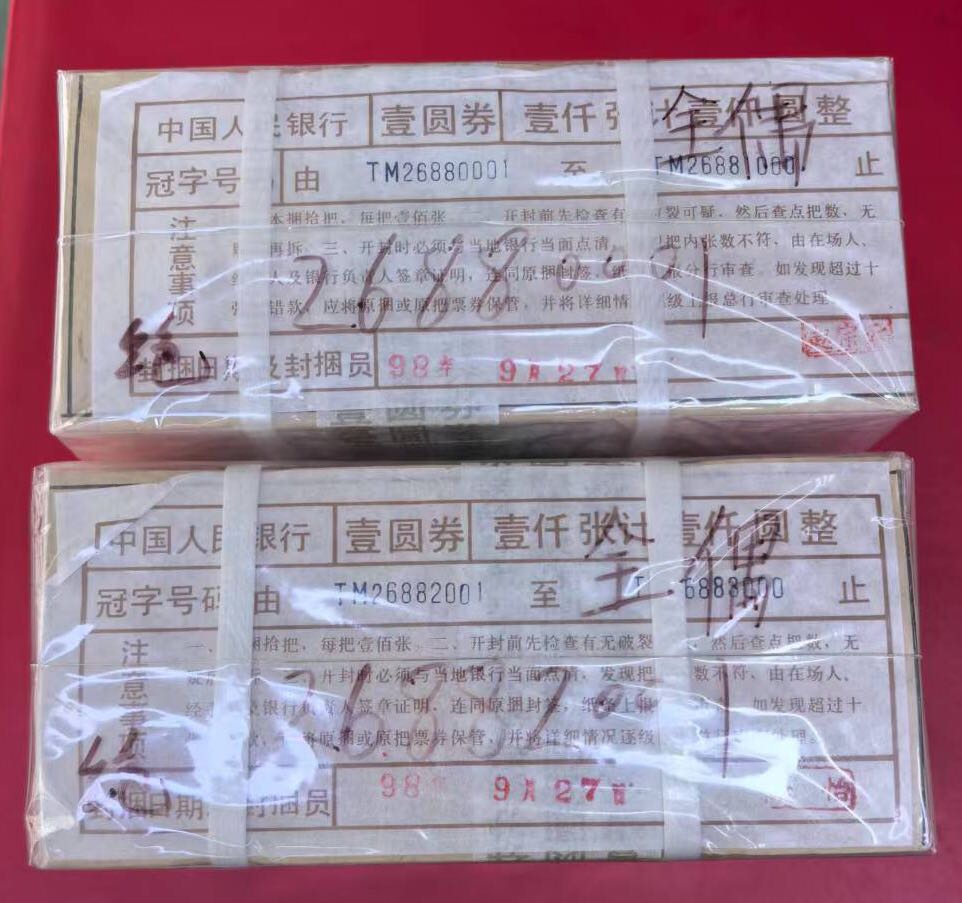 中国人民银行 壹圆券 壹仟张计壹仟圆整
全偶
冠字号 由 TM26880001 至 TM26881000 止
注意事项
本捆拾把，每把壹佰张 二、开封前先检查有 裂可疑，然后查点把数，无
再拆。三、开封时必须与当地银行当面点清 把内张数不符，由在场人、
人及银行负责人签章证明，连同原捆封签，纸 分行审查 如发现超过十
错款，应将原捆或原把票券保管，并将详细情 级上报总行审查处理。
26880001
绝
封捆日期及封捆员 98年 9月27日
壹圆券
中国人民银行 壹圆券 壹仟张计壹仟圆整
全偶
冠字号码 由 TM26882001 至 T 6883000 止
注意事项
一、 捆拾把，每把壹佰张 二、开封前先检查有无破裂 然后查点把数，无
开封时必须与当地银行当面点清，发现把 数不符，由在场人、
银行负责人签章证明，连同原捆封签，纸条上报 如发现超过十
款， 将原捆或原把票券保管，并将详细情况逐级
26882001
封捆日期 封捆员 98年 9月27日